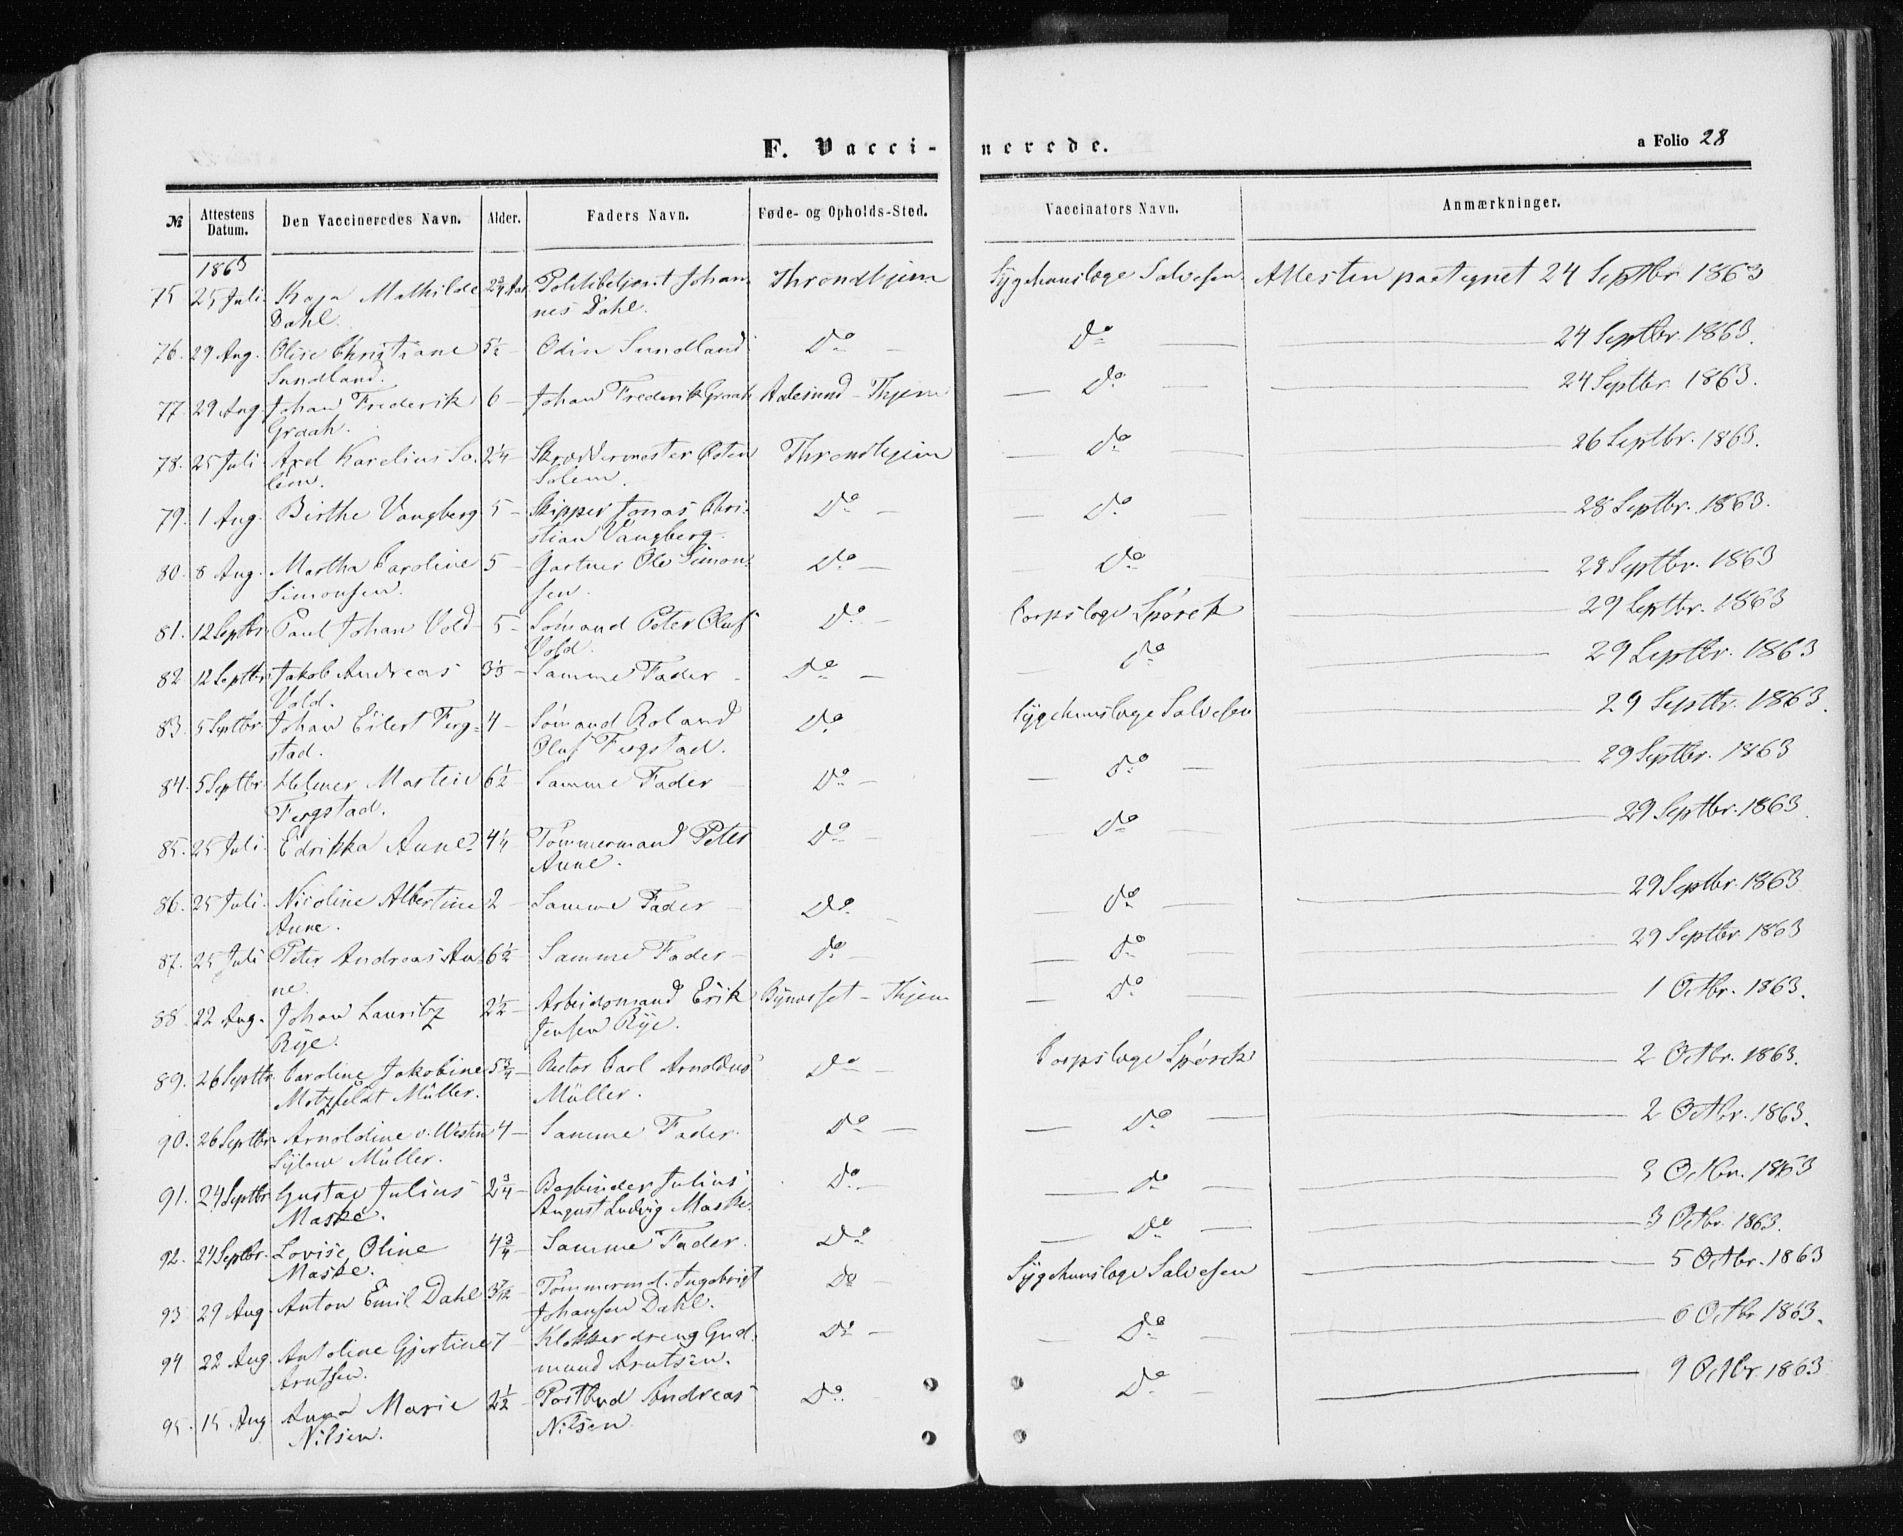 F. Vaccinerede.
a Folio 28
№ | Attestens Datum. | Den Vaccineredes Navn. | Alder. | Faders Navn. | Føde- og Opholds-Sted. | Vaccinators Navn. | Anmærkninger.
1863
75 | 25 Juli | Kaja Mathilde Dahl. | 2¾ Aar | Politibetjent Johannes Dahl. | Throndhjem | Sygehuuslæge Salvesen | Attesten paategnet 24 Septbr 1863
76. | 29 Aug. | Olise Christiane Sundland. | 5½ – | Odin Sundland | Do – | Do — | — 24 Septbr. 1863.
77 | 29 Aug | Johan Frederik Graah. | 6 – | Johan Frederik Graah | Aalesund – Thjem | — Do — | — 24 Septbr. 1863.
78. | 25 Juli | Axel Karelius Solem. | 2¼ – | Skræddermester Osten Solem. | Throndhjem | — Do — | — 26 Septbr. 1863.
79. | 1 Aug. | Birthe Vangberg | 5 – | Skipper Jonas Christian Vangberg. | Do – | — Do — | — 28 Septbr. 1863.
80. | 8 Aug. | Martha Caroline Simonsen. | 5 – | Gartner Ole Simonsen. | Do — | Do | — 28 Septbr. 1863
81. | 12 Septbr | Paul Johan Vold | 5 – | Sømand Peter Oluf Vold. | Do – | Corpslæge Spørck | — 29 Septbr. 1863
82 | 12 Septbr | Jakob Andreas Vold. | 3⅓ – | Samme Fader – | Do — | — Do | — 29 Septbr. 1863
83. | 5 Septbr | Johan Eilert Fergstad. | 4 – | Sømand Roland Oluf Fergstad. | Do | Sygehuuslæge Salvesen | — 29 Septbr. 1863.
84. | 5 Septbr. | Helmer Martin Fergstad. | 6½ – | Samme Fader – | Do – | — Do — | — 29 Septbr. 1863
85. | 25 Juli. | Edrikka Aune | 4¼ | Tømmermand Peter Aune. | Do – | — Do — | — 29 Septbr. 1863.
86. | 25 Juli. | Nicoline Albertine Aune. | 2 – | Samme Fader – | Do. – | — Do — | — 29 Septbr. 1863
87. | 25 Juli | Peter Andreas Aune. | 6½ – | Samme Fader – | Do – | — Do — | — 29 Septbr 1863
88. | 22 Aug. | Johan Lauritz Rye. | 2½ – | Arbeidsmand Erik Jensen Rye. | Bynæsset – Thjem | — Do — | — 1 Octbr. 1863.
89. | 26 Septbr | Caroline Jakobine Motzfeldt Müller. | 5¾ – | Rector Carl Arnoldus Müller. | Do – | Corpslæge Spørck | — 2 Octbr. 1863.
90. | 26 Septbr. | Arnoldine v. Westen Sylow Müller. | 4 – | Samme Fader. | Do — | — Do — | — 2 Octbr. 1863.
91. | 24 Septbr | Gustav Julius Maske. | 2¾ – | Bogbinder Julius August Ludvig Maske. | Do – | — Do — | — 3 Octbr. 1863
92. | 24 Septbr. | Lovise Oline Maske. | 4¾ – | Samme Fader. | Do | — Do — | — 3 Octbr. 1863.
93 | 29 Aug | Anton Emil Dahl | 3 7/12 – | Tømmermd. Ingebrigt Johansen Dahl. | Do – | Sygehuuslæge Salvesen | — 5 Octbr. 1863
94 | 22 Aug. | Antoline Gjertine Arntsen. | 7 – | Klokkerdreng Gudmund Arntsen. | Do – | — Do — | — 6 Octbr 1863.
95. | 15 Aug | Anna Marie Nilsen. | 2½ – | Postbud Andreas Nilsen. | Do. – | Do – | — 9 Octbr 1863